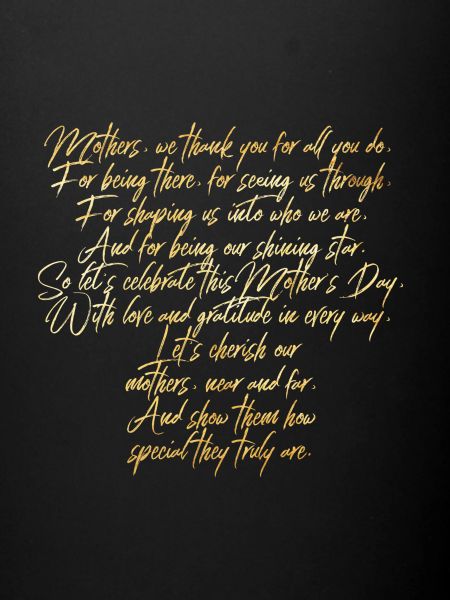 Mothers, we thank you for all you do,
For being there, for seeing us through,
For shaping us into who we are,
And for being our shining star.
So let's celebrate this Mother's Day,
With love and gratitude in every way,
Let's cherish our
mothers, near and far,
And show them how
special they truly are.